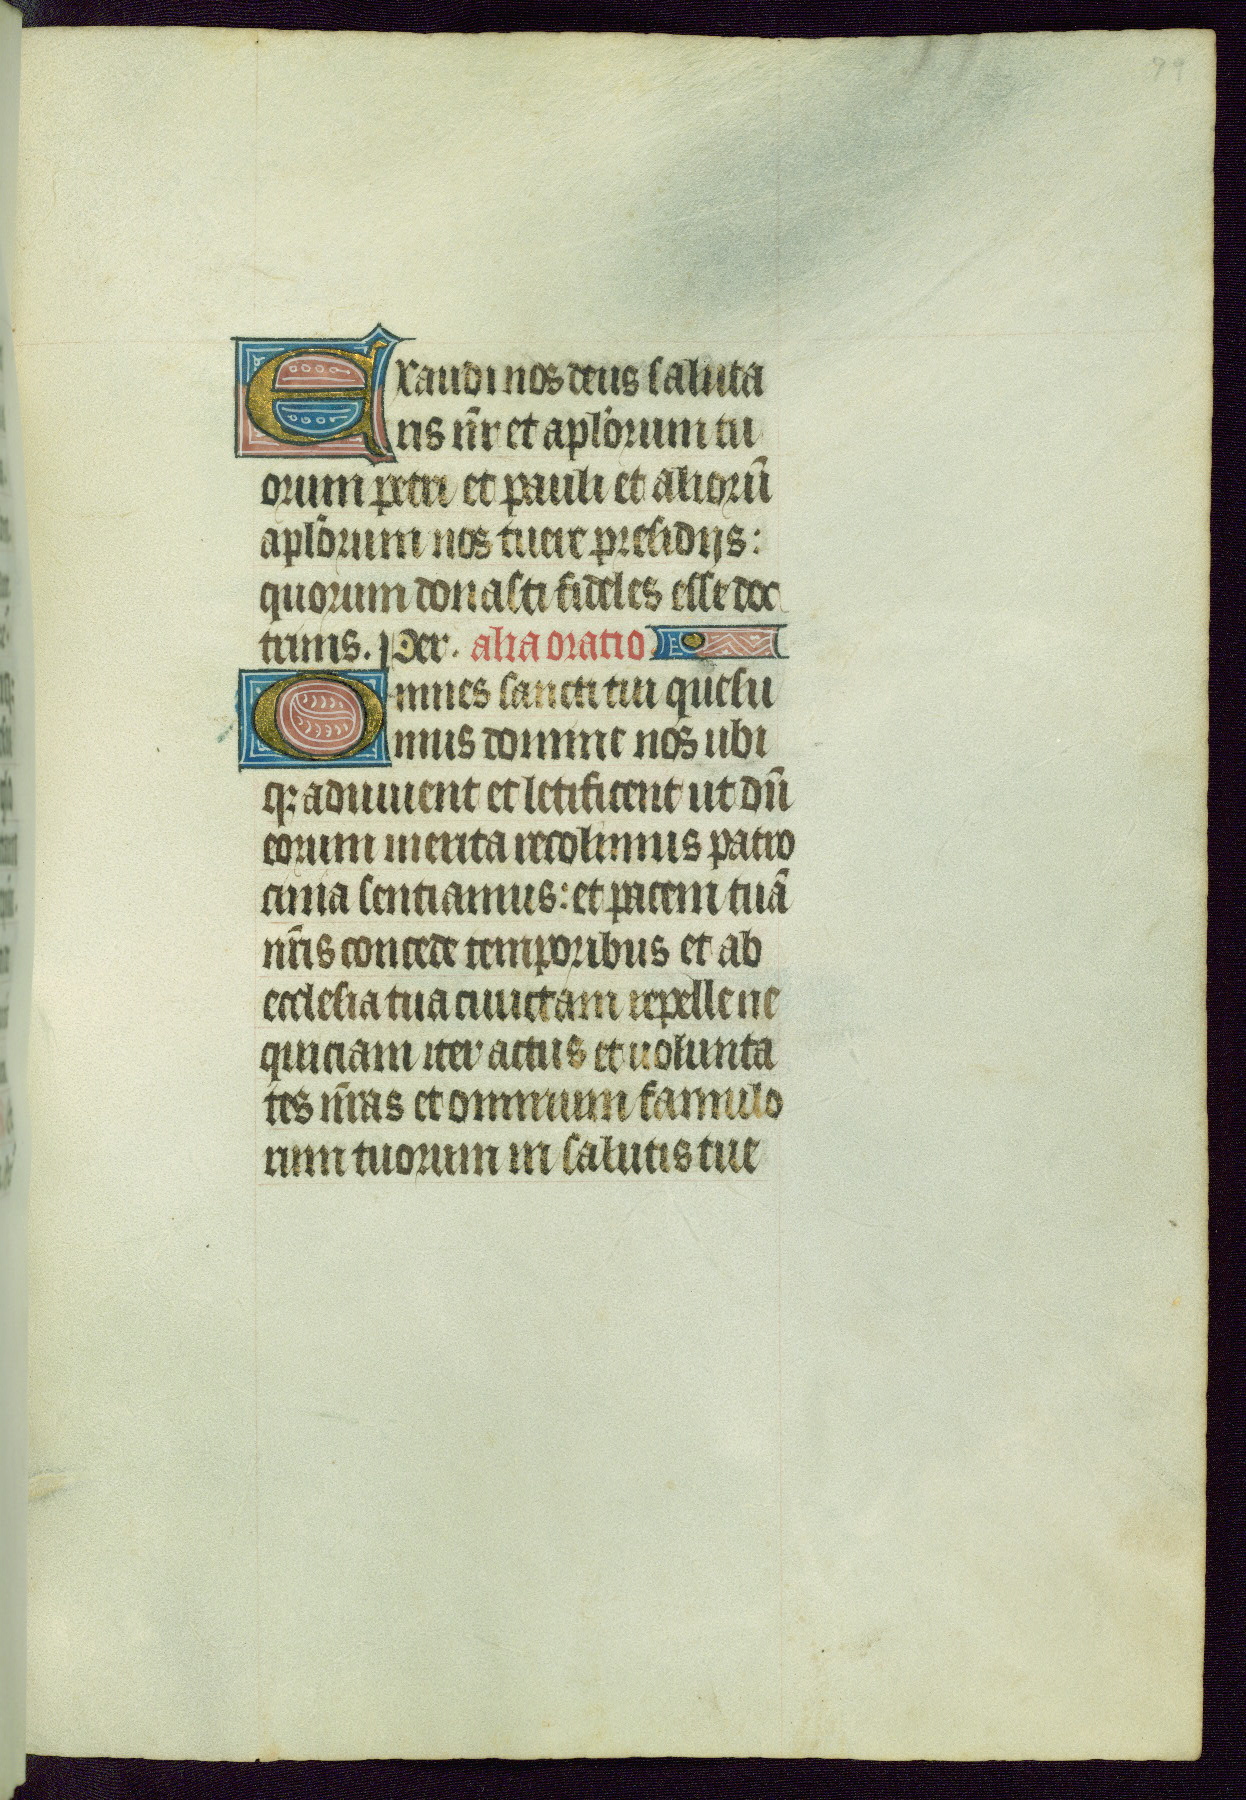 79
Exaudi nos deus saluta
ris nr̄ et apl̄orum tu
orum petri et pauli et aliorū
apl̄orum nos tuere presidijs:
quorum donasti fideles esse doc
trinis. Per. alia oratio
Omnes sancti tui quesu
mus domine nos ubi
q; adiuuent et letificent ut dū
eorum merita recolimus patro
cinia sentiamus: et pacem tuā
nr̄is concede temporibus et ab
ecclesia tua cunctam repelle ne
quiciam iter actus et uolunta
tes nr̄as et omnium famulo
rum tuorum in salutis tue